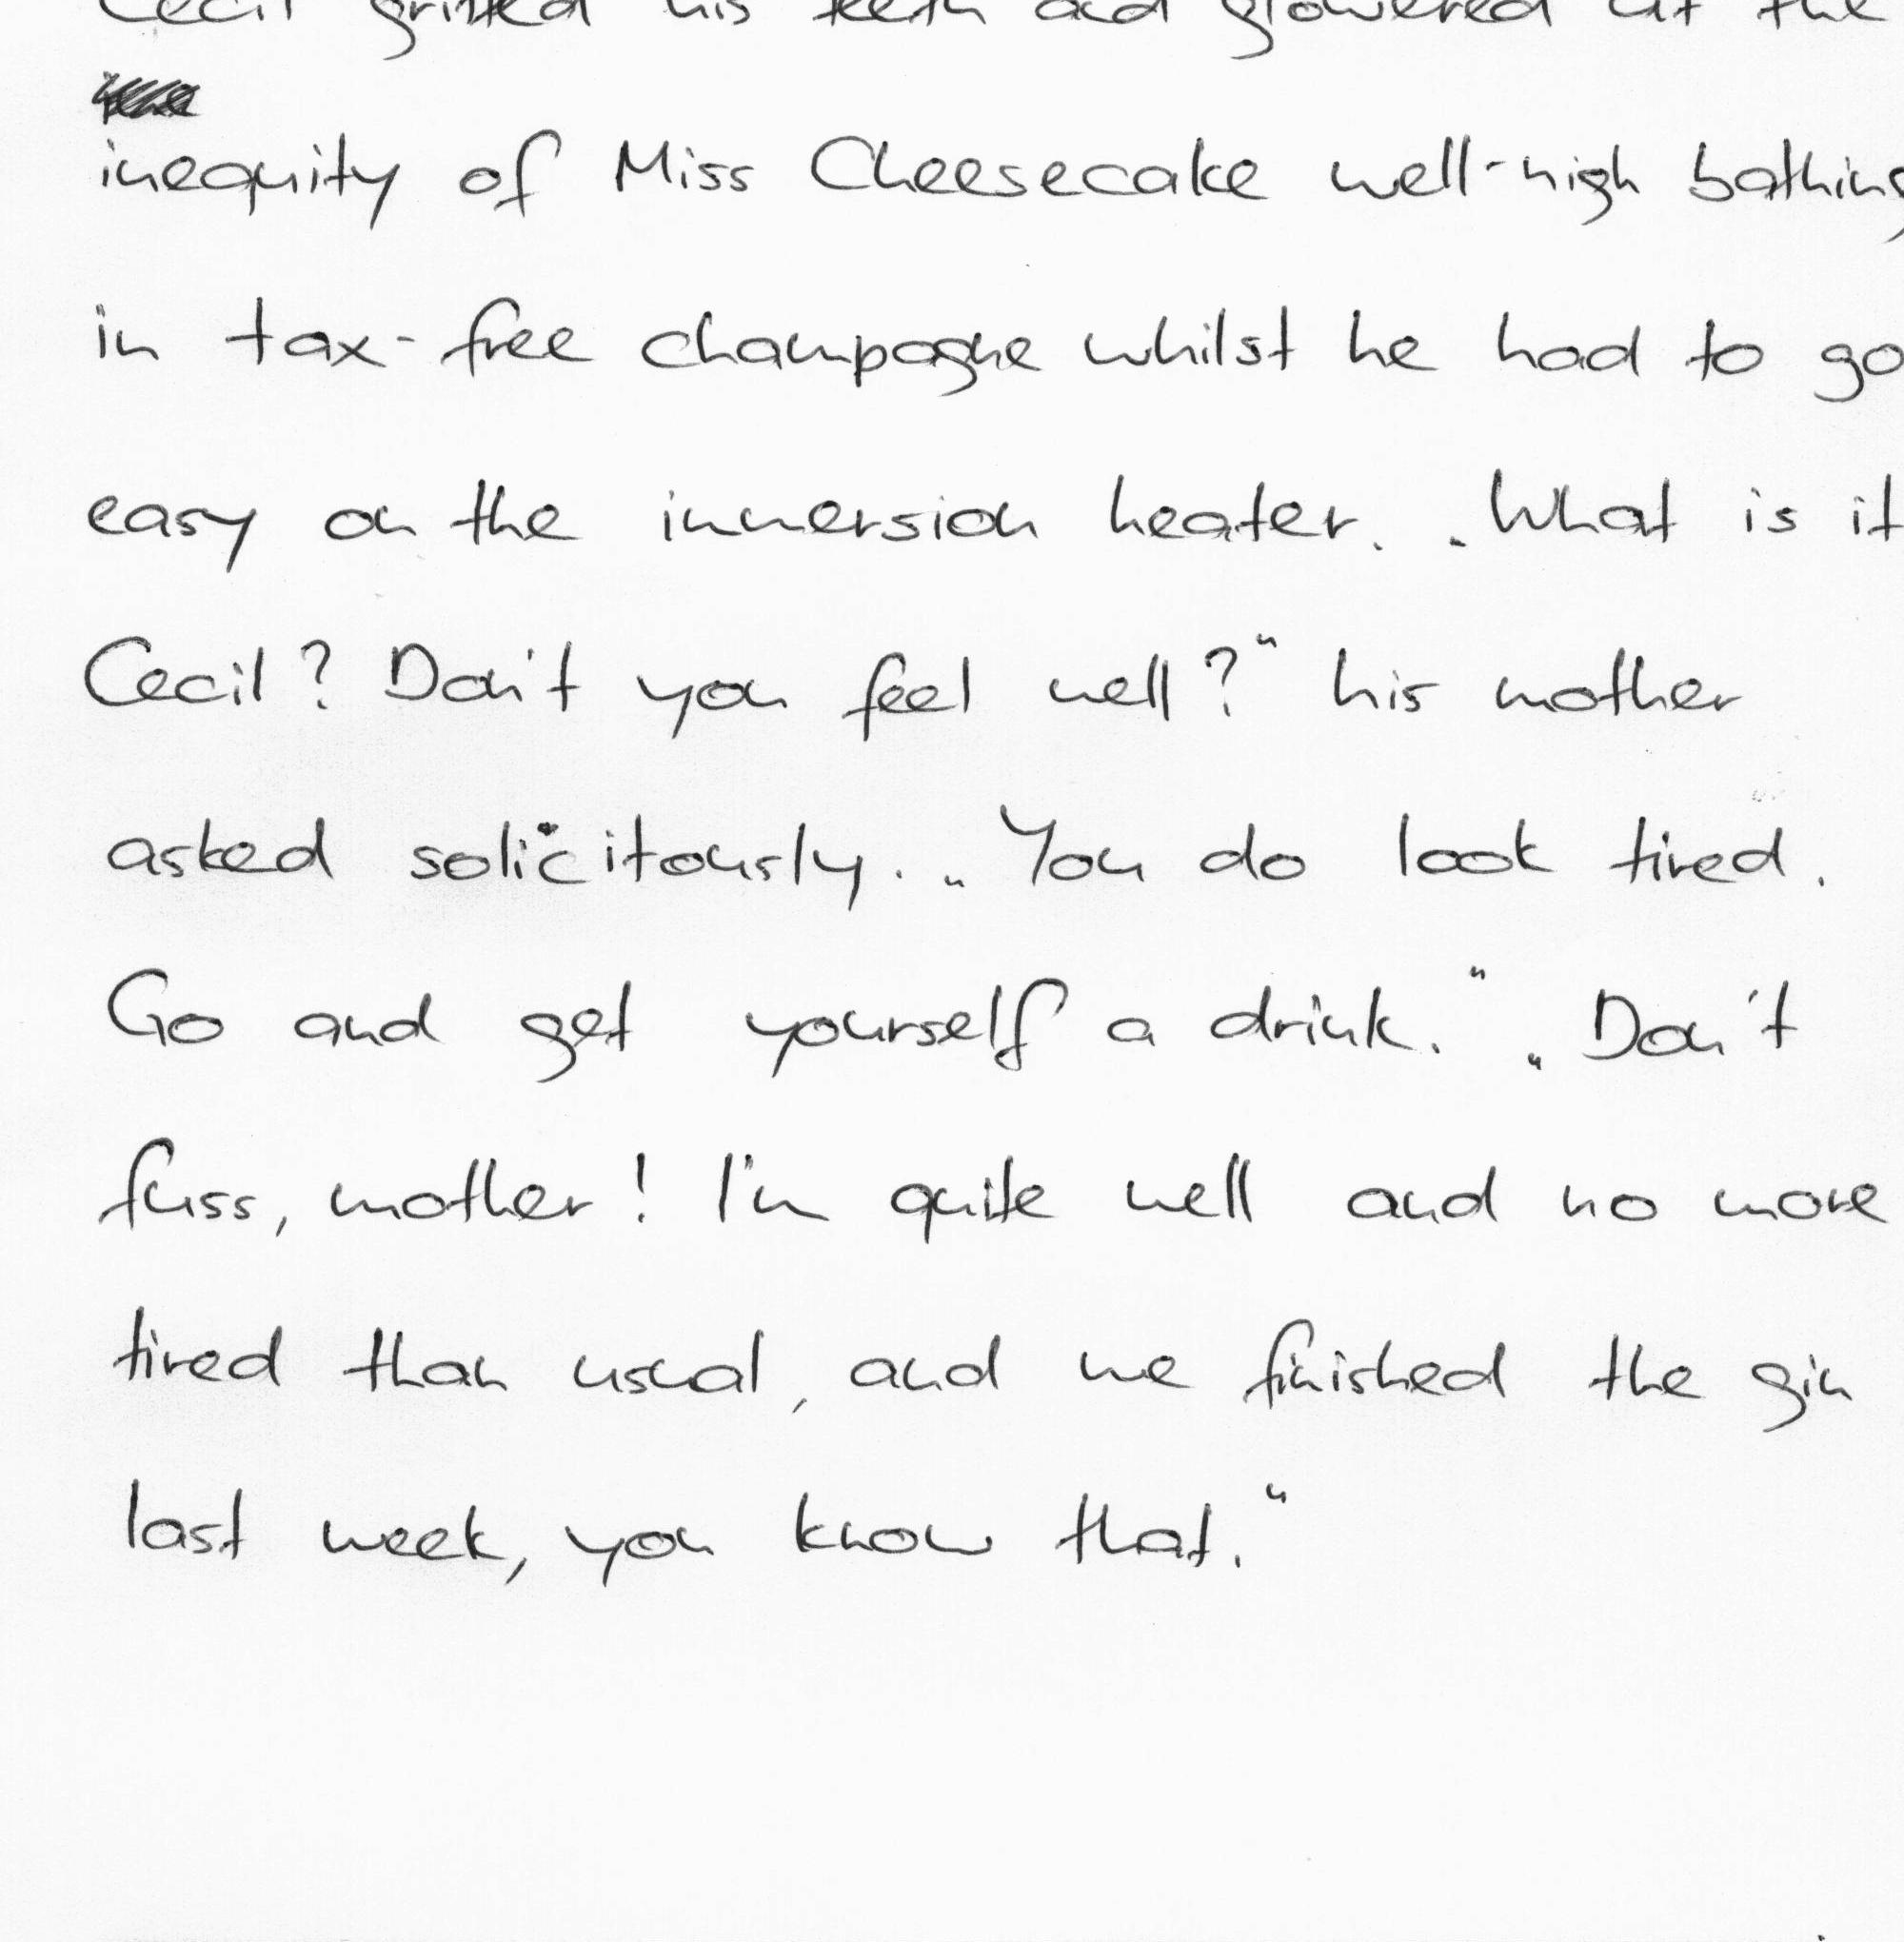 Cecil gritted his teeth and glowered at the
inequity of Miss Cheesecake well-nigh bathing
in tax-free champagne whilst he had to go
easy on the immersion heater. "What is it
Cecil? Don't you feel well?" his mother
asked solicitously. "You do look tired.
Go and get yourself a drink." "Don't
fuss, mother! I'm quite well and no more
tired than usual, and we finished the gin
last week, you know that."